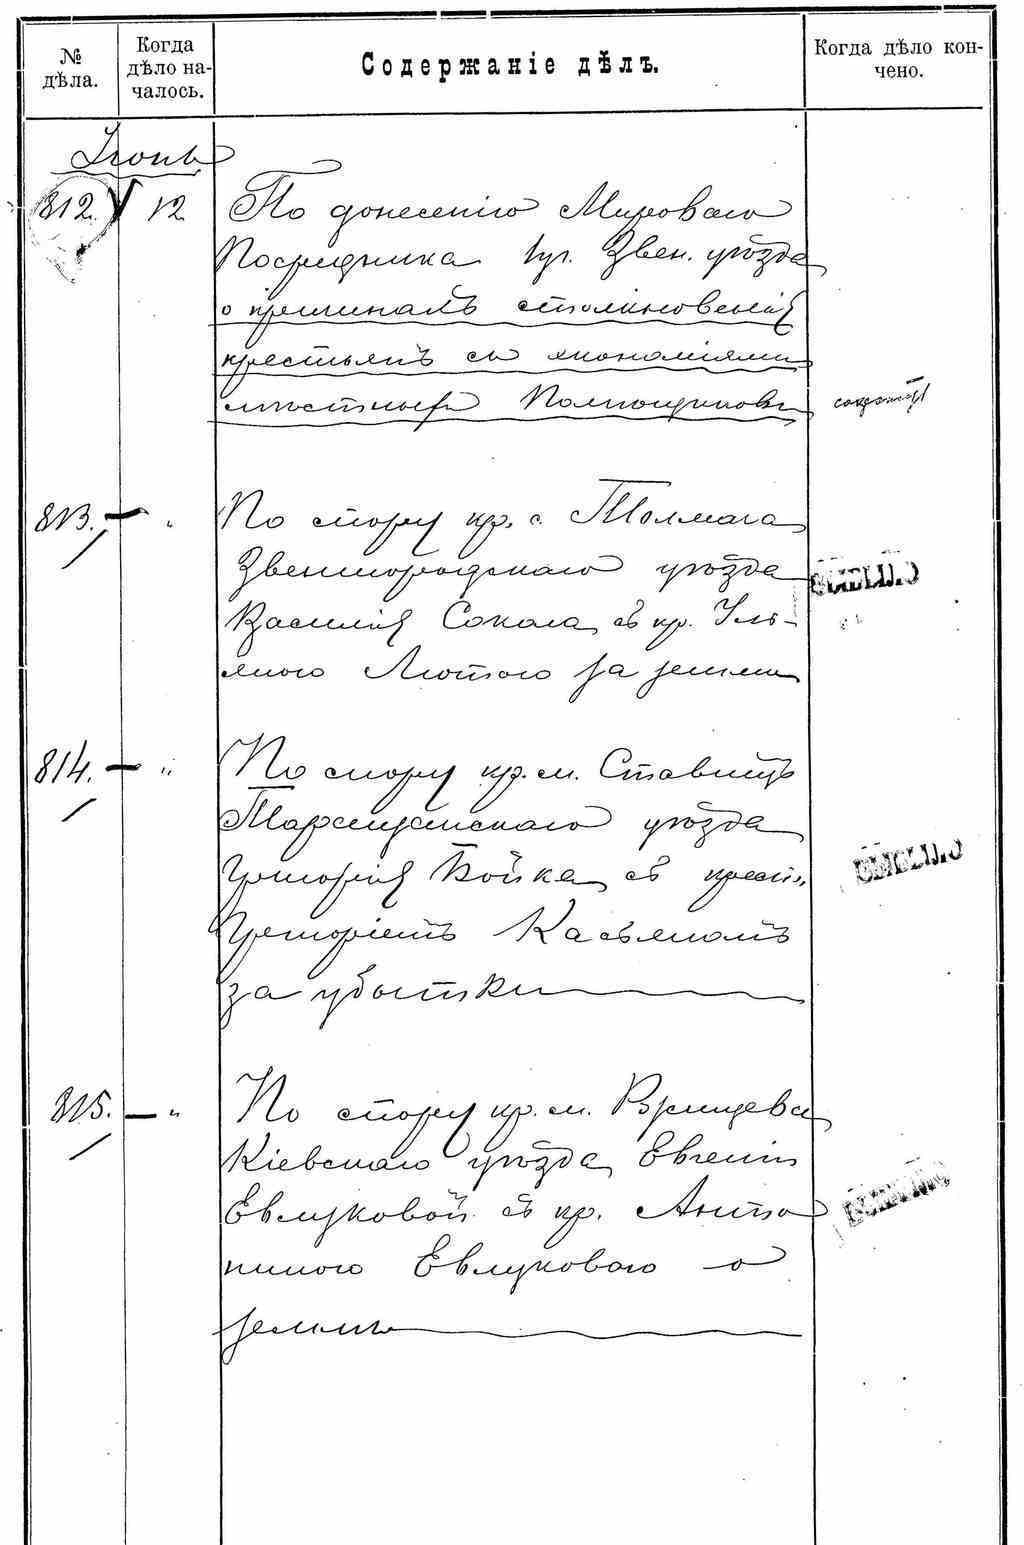 № дѣла.
Когда дѣло на-
чалось.
Содержаніе дѣлъ.
Когда дѣло кон-
чено.
Іюнь
812. 12 По донесенію Мироваго
Посредника 1 уч. Звен. уѣзда
о причинахъ столкновенія
крестьянъ съ экономіями
мѣстныхъ Помѣщиковъ
813. — „ По спору кр. с. Толмача
Звенигородскаго уѣзда
Василія Сокола съ кр. Уль-
яного Лютого за землю
814. — „ По спору кр. м. Ставищъ
Таращанскаго уѣзда
Григорія Бойка съ крест.
Григоріемъ Касьяномъ
за убытки
815. — „ По спору кр. м.
Кіевскаго уѣзда Евгеніи
Евлуковой съ кр. Анто
ниною Евлуковою о
землѣ